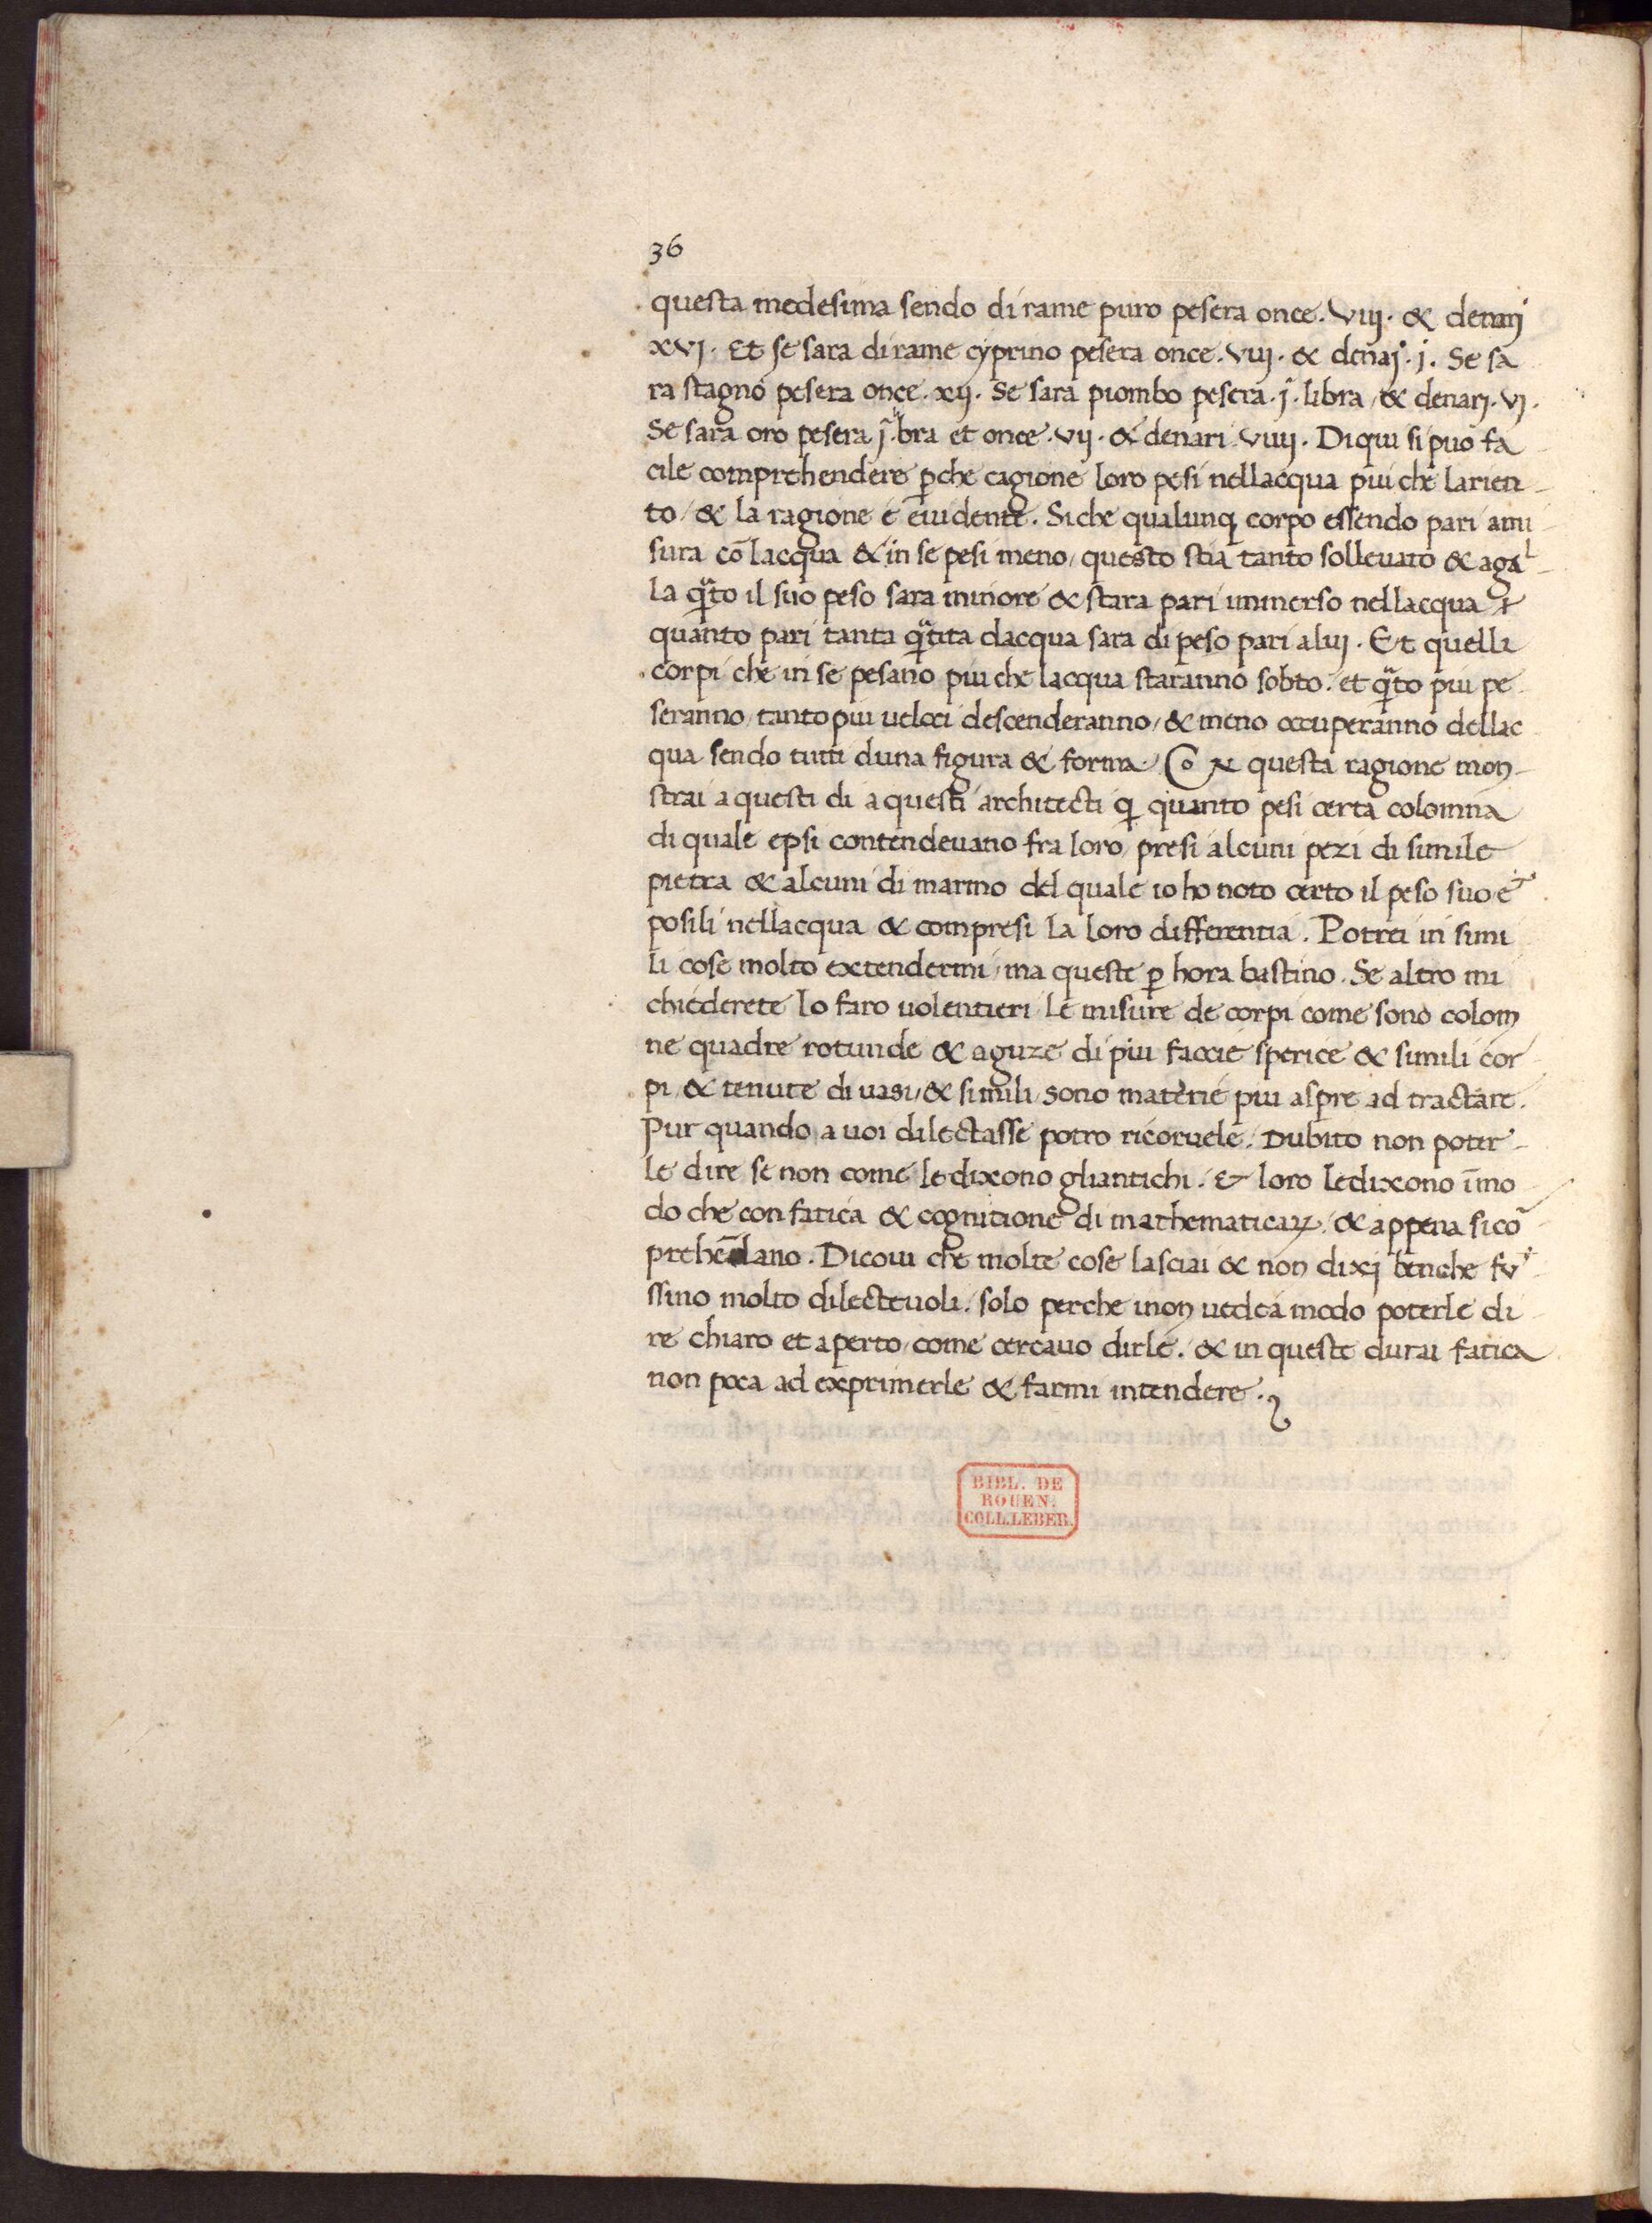 36
questa medesima sendo di rame puro pesera once. viij. & denarj
xvj. Et se sara di rame cyprino pesera once. viij. & denaj. j. Se sa
ra stagno pesera once. xij. Se sara piombo pesera. j. libra / & denarj. vj.
Se sara oro pesera j. libra et once. vij. & denari. viiij. Di qui si puo fa
cile comprehendere p̱che cagione loro pesi nellacqua piu che larien
to / & la ragione e euidente. Siche qualunq corpo essendo pari ami
sura cō lacqua & in se pesi meno / questo stia tanto solleuato & agal
la q̃to il suo peso sara minore & stara pari immerso nellacqua
quanto pari tanta q̃tita dacqua sara di peso pari a luj. Et quelli
corpi che in se pesano piu che lacqua staranno sobto. et q̃to piu pe
seranno / tanto piu ueloci descenderanno / & meno occuperanno dellac
qua sendo tutti duna figura & forma. Cō questa ragione mon
strai a questi di a questi architecti q̱ quanto pesi certa colomna
di quale epsi contendeuano fra loro / presi alcuni pezi di simile
pietra & alcuni di marmo del quale io ho noto certo il peso suo et
posili nellacqua & compresi la loro differentia. Potrei in simi
li cose molto extendermi / ma queste p̱ hora bastino. Se altro mi
chiederete lo faro uolentieri / Le misure de corpi come sono colom
ne quadre rotunde & aguze di piu faccie sperice & simili cor
pi / & tenute di uasi / & simili / sono materie piu aspre ad tractare.
Pur quando a uoi dilectasse potro ricoruele. Dubito non poter
le dire se non come le dixono gliantichi. & loro ledixono īmo
do che con fatica & cognitione di mathematicaꝝ / & appena si cō
prehēdano. Dicoui che molte cose lasciai & non dixj benche fu
ssino molto dilecteuoli. solo perche inon uedea modo poterle di
re chiaro et aperto / come cercauo dirle. & in queste durai fatica
non poca ad exprimerle & farmi intendere.
BIBL. DE
ROUEN.
COLL. LEBER.